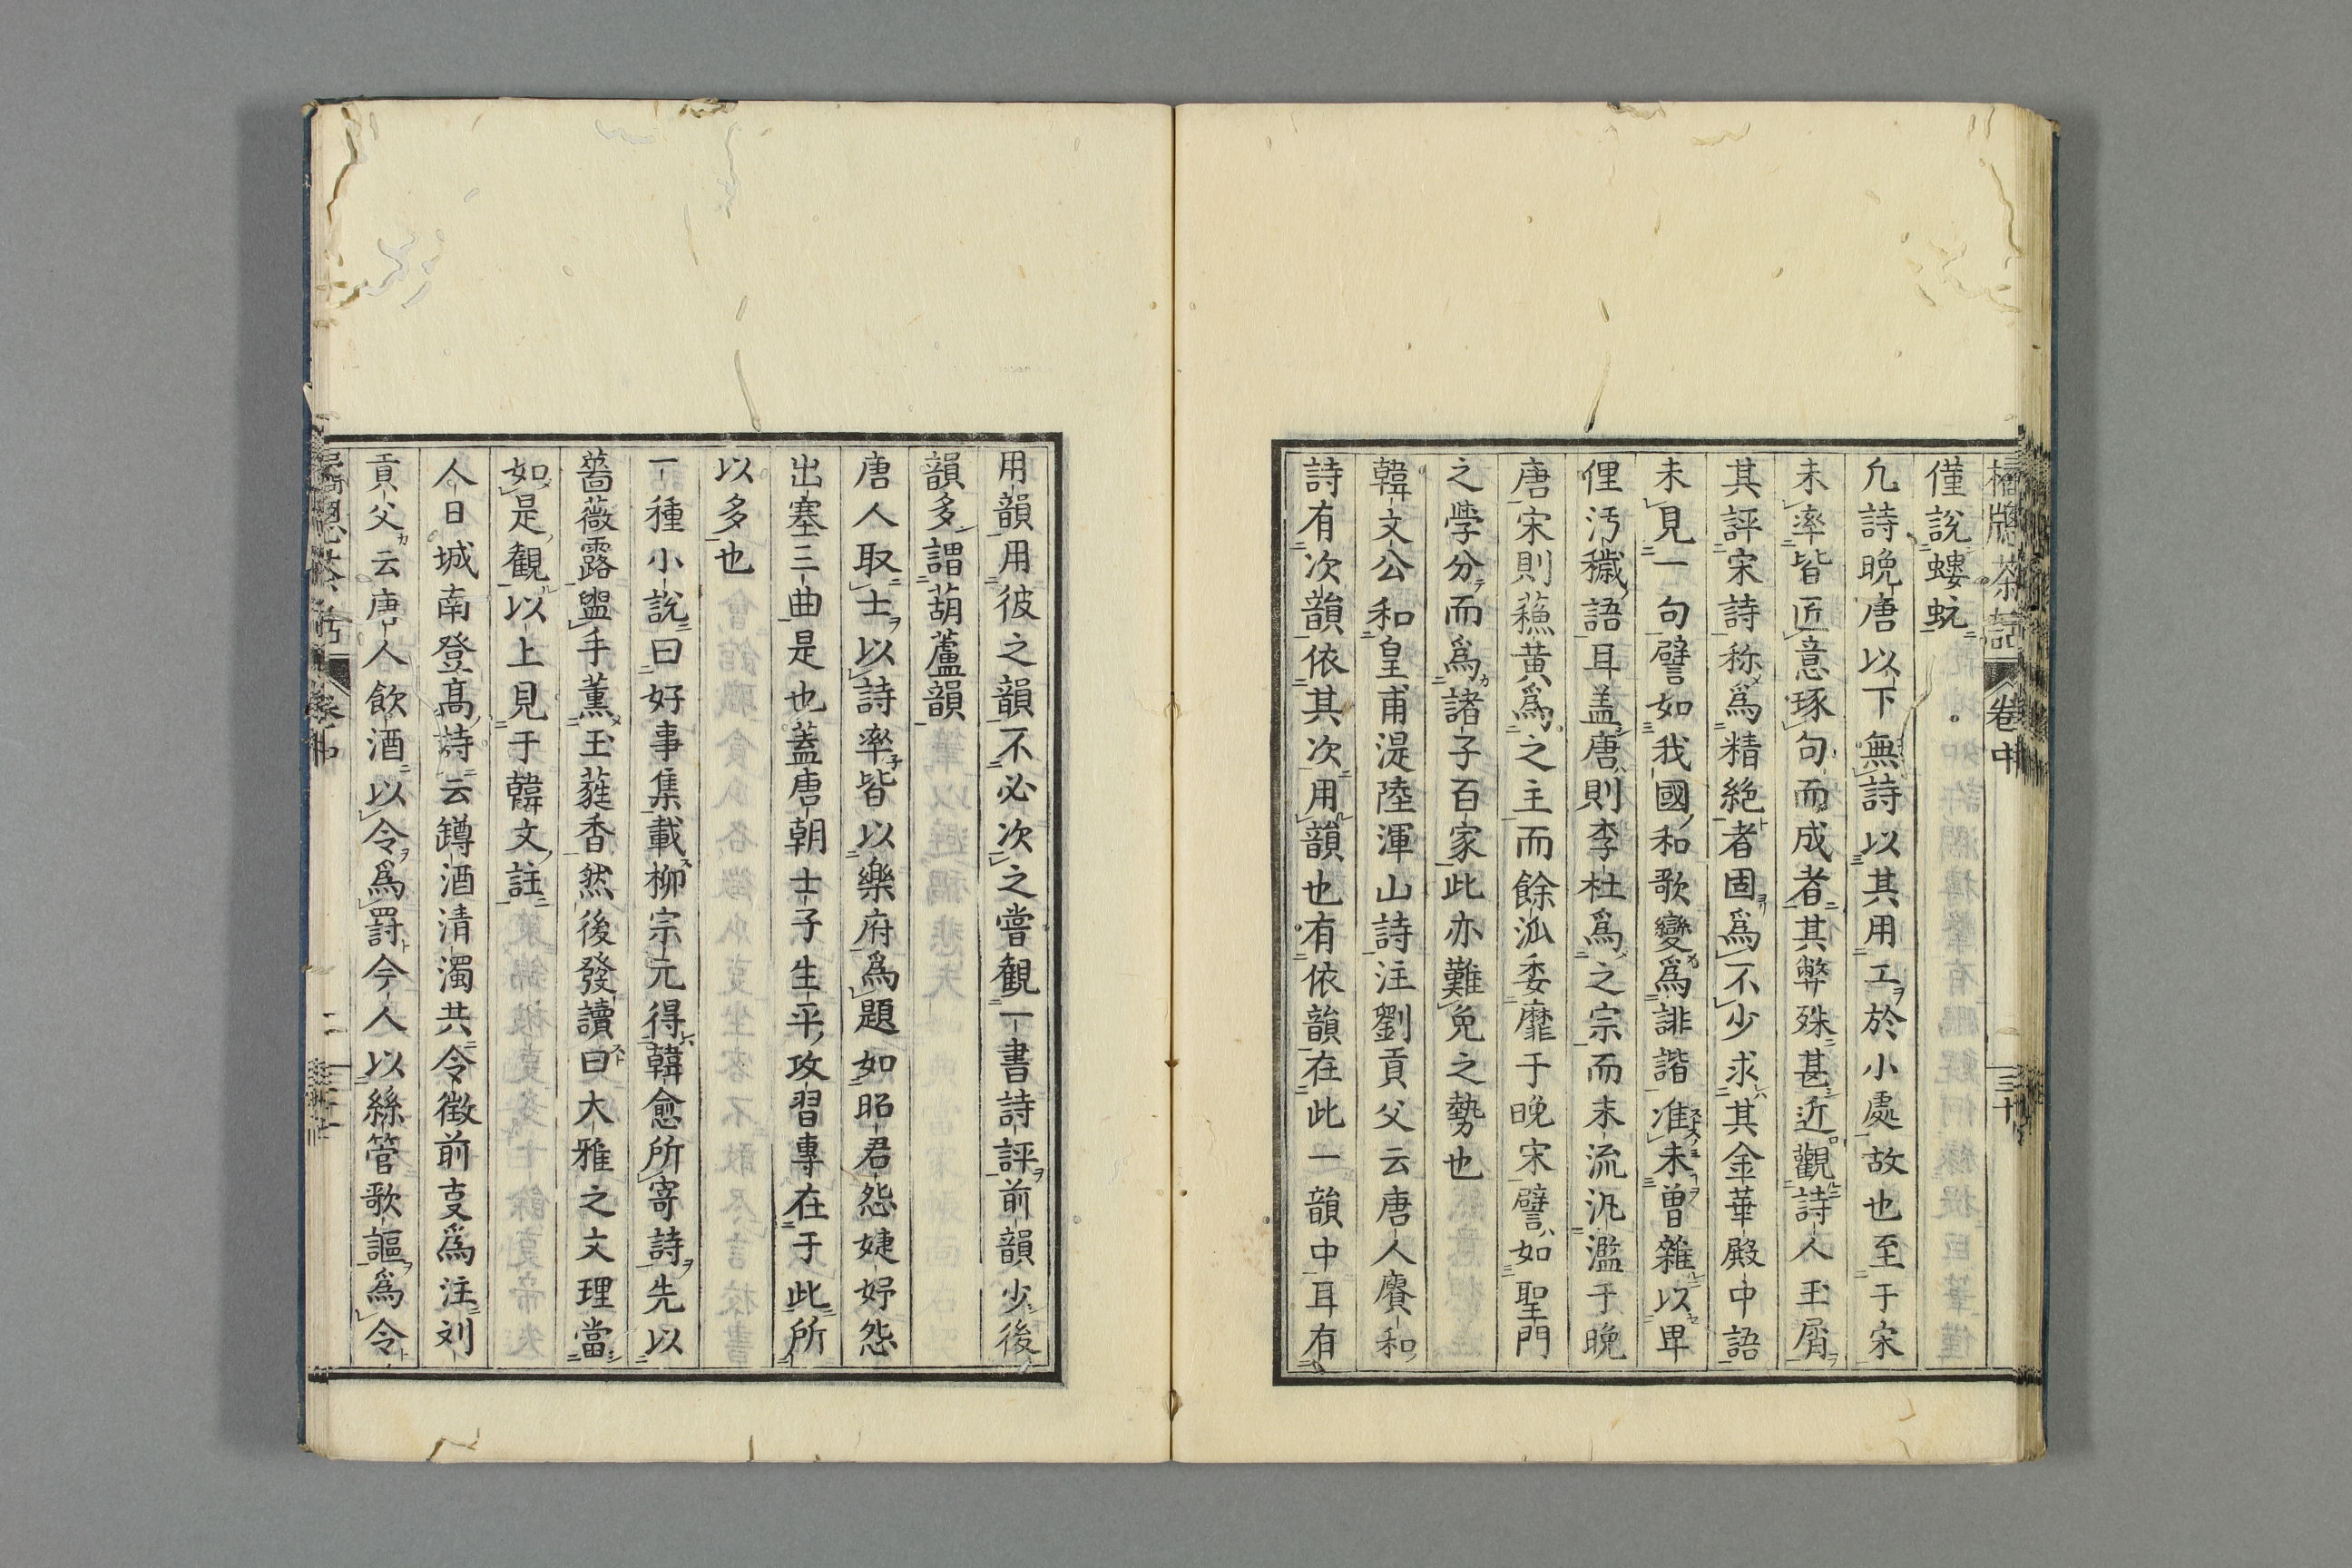 橘牕茶話 卷中 三十
僅說螻蚿
凢詩晩唐以下無詩以其用工於小處故也至于宋
末率皆匠意琢句而成者其弊殊甚近觀詩人玉屑
其評宋詩称爲精絶者固爲不少求其金華殿中語
未見一句譬如我國和歌變爲誹諧准未曾雜以卑
俚汚穢語耳盖唐則李杜爲之宗而末流汎濫于晩
唐宋則蘓黄爲之主而餘泒委靡于晩宋譬如聖門
之学分而爲諸子百家此亦難免之勢也
韓文公和皇甫湜陸渾山詩注劉貢父云唐人賡和
詩有次韻依其次用韻也有依韻在此一韻中耳有
用韻用彼之韻不必次之嘗観一書詩評前韻少後
韻多謂葫蘆韻
唐人取士以詩率皆以樂府爲題如昭君怨婕妤怨
出塞三曲是也蓋唐朝士子生平攻習專在于此所
以多也
一種小說曰好事集載柳宗元得韓愈所寄詩先以
薔薇露盥手薫玉蕤香然後發讀曰大雅之文理當
如是観以上見于韓文註
人日城南登髙詩云罇酒清濁共令徴前叓爲注刘
貢父云唐人飲酒以令爲罸今人以絲管歌謳爲令